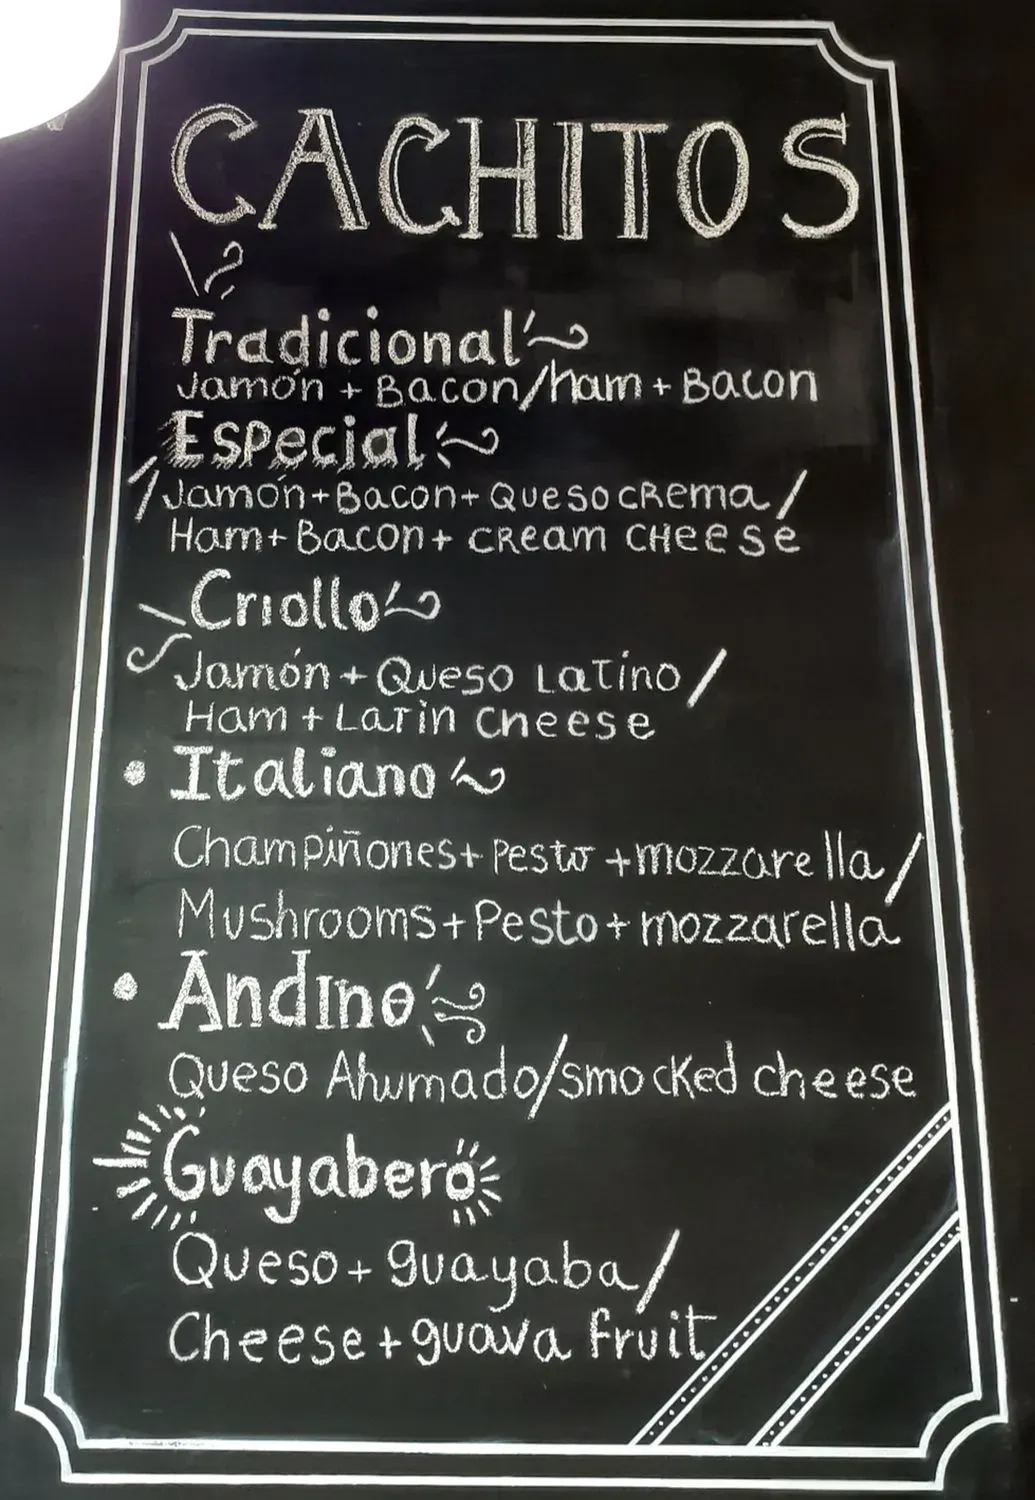 CACHITOS
Tradicional
Jamón + Bacon/ham + Bacon
Especial
Jamón+Bacon+Queso crema/
Ham+Bacon+cream cheese
Criollo
Jamón + Queso Latino/
Ham + Latin cheese
Italiano
Champiñones+pesto+mozzarella/
Mushrooms+Pesto+mozzarella
Andino
Queso Ahumado/smocked cheese
Guayabero
Queso+guayaba/
Cheese+guava fruit